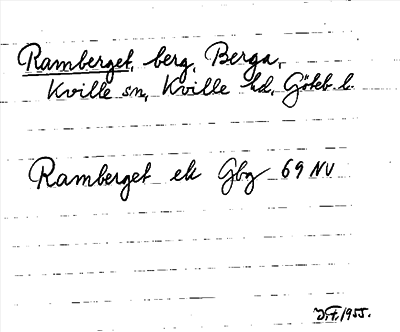 Ramberget, berg, Berga,
Kville sn, Kville hd, Göteb. l.
Ramberget ek Gbg 69 NV
1955.